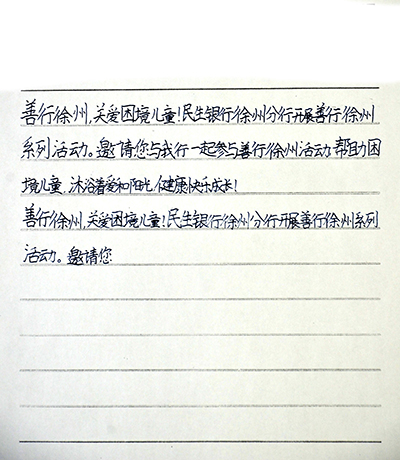 善行徐州,关爱困境儿童!民生银行徐州分行开展善行徐州
系列活动。邀请您与我行一起参与善行徐州活动帮助困
境儿童,沐浴着爱和阳光,健康快乐成长!
善行徐州,关爱困境儿童!民生银行徐州分行开展善行徐州系列
活动。邀请您